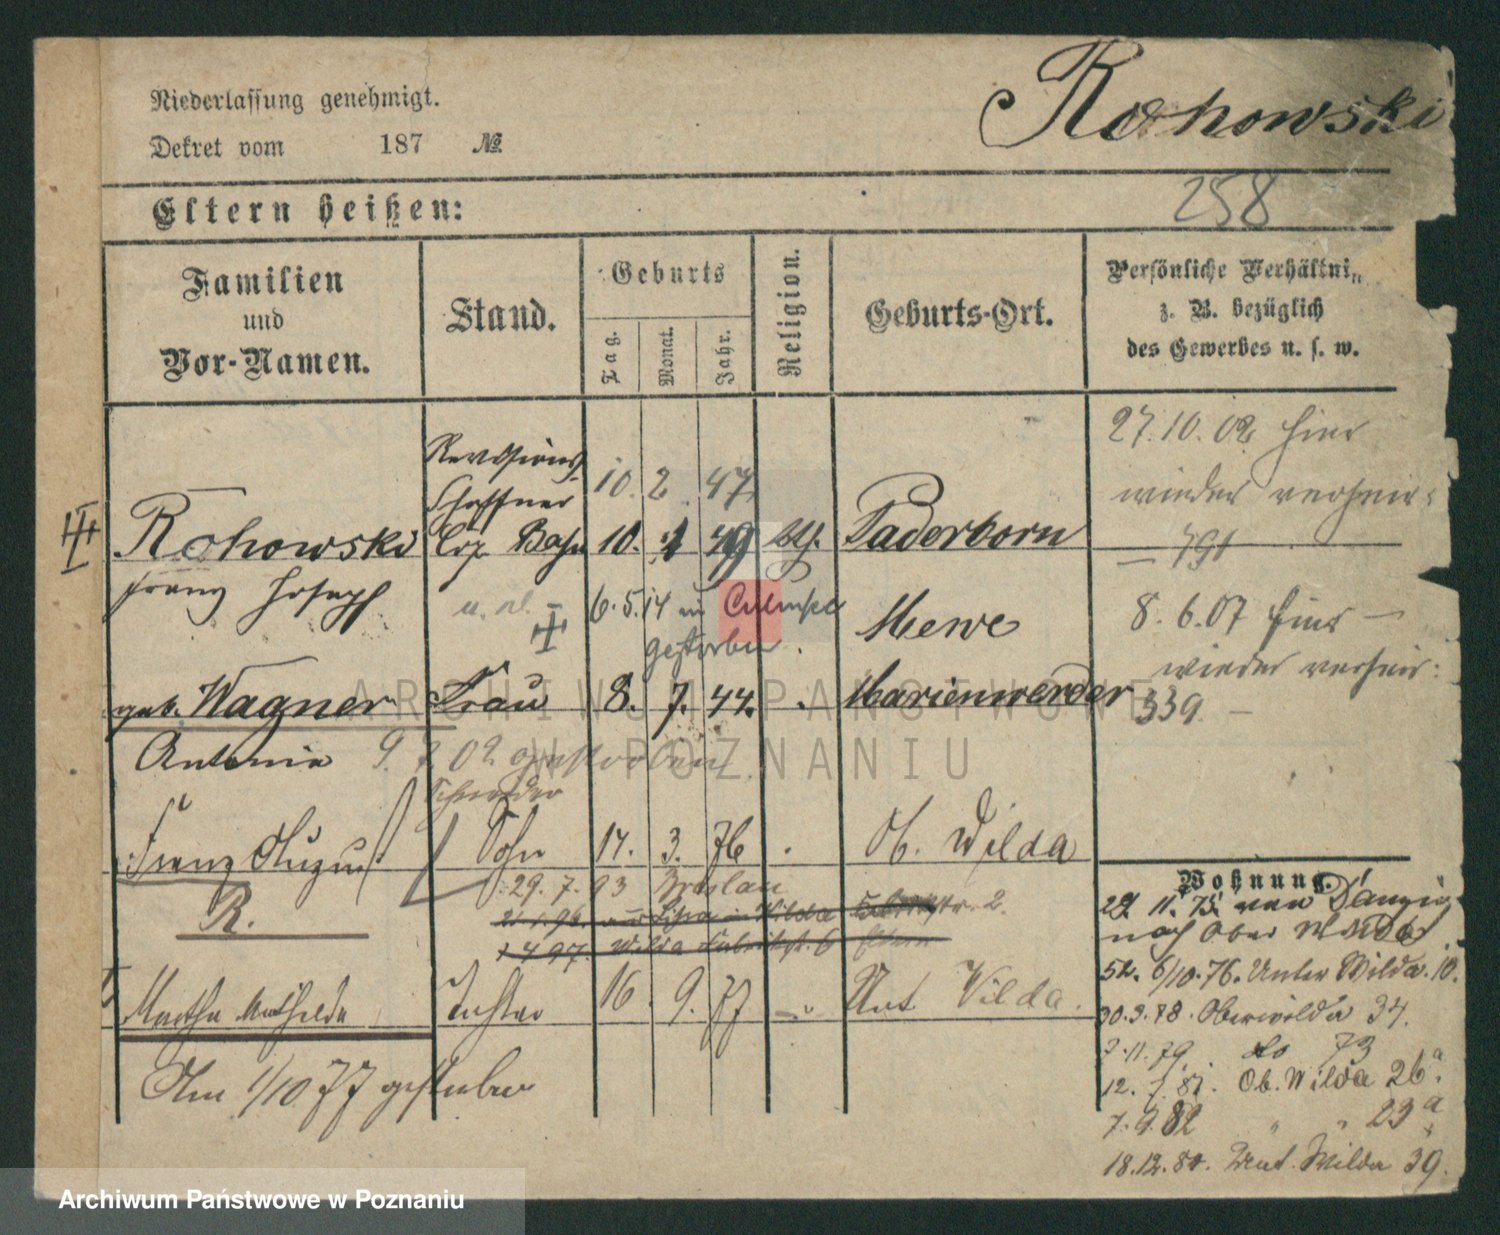 Niederlassung genehmigt.
Dekret vom 187 №
Rohowski
258
Eltern heißen:
Familien
und
Vor-Namen.
Stand.
Geburts
Tag.
Monat.
Jahr.
Religion.
Geburts-Ort.
Persönliche Verhältni
z. B. bezüglich
des Gewerbes u. s. w.
Revisions
Schaffner
10. 2. 47
27.10.02 hier
wieder verheir:
791
III
Rohowski Bahn 10. 49 kth. Paderborn
Franz Joseph
6.5.14 in Culmsee
gestorben.
Mewe
8.6.07 hier
wieder verheir:
339
geb. Wagner Frau 8. 7. 44. Marienwerder
Antonie 9. 7. 02 gestorben
Franz August Sohn 17. 3. 76 Ob. Wilda
R.
29. 7. 93 Breslau
Martha Mathilde Tochter 16. 9. 77 Unt. Wilda.
Am 1/10 77 gestorben
Wohnung.
29. 11. 75. von Danzig
nach Ober Wilda
52. 6/10. 76. Unter Wilda. 10.
30.3.78. Oberwilda 34.
7.11.79. do 73
12. 7. 81. Ob. Wilda 26a.
7.9.82 " " 23a
18.12.84. Unt. Wilda 39.
ARCHIWUM PAŃSTWOWE
W POZNANIU
Archiwum Państwowe w Poznaniu